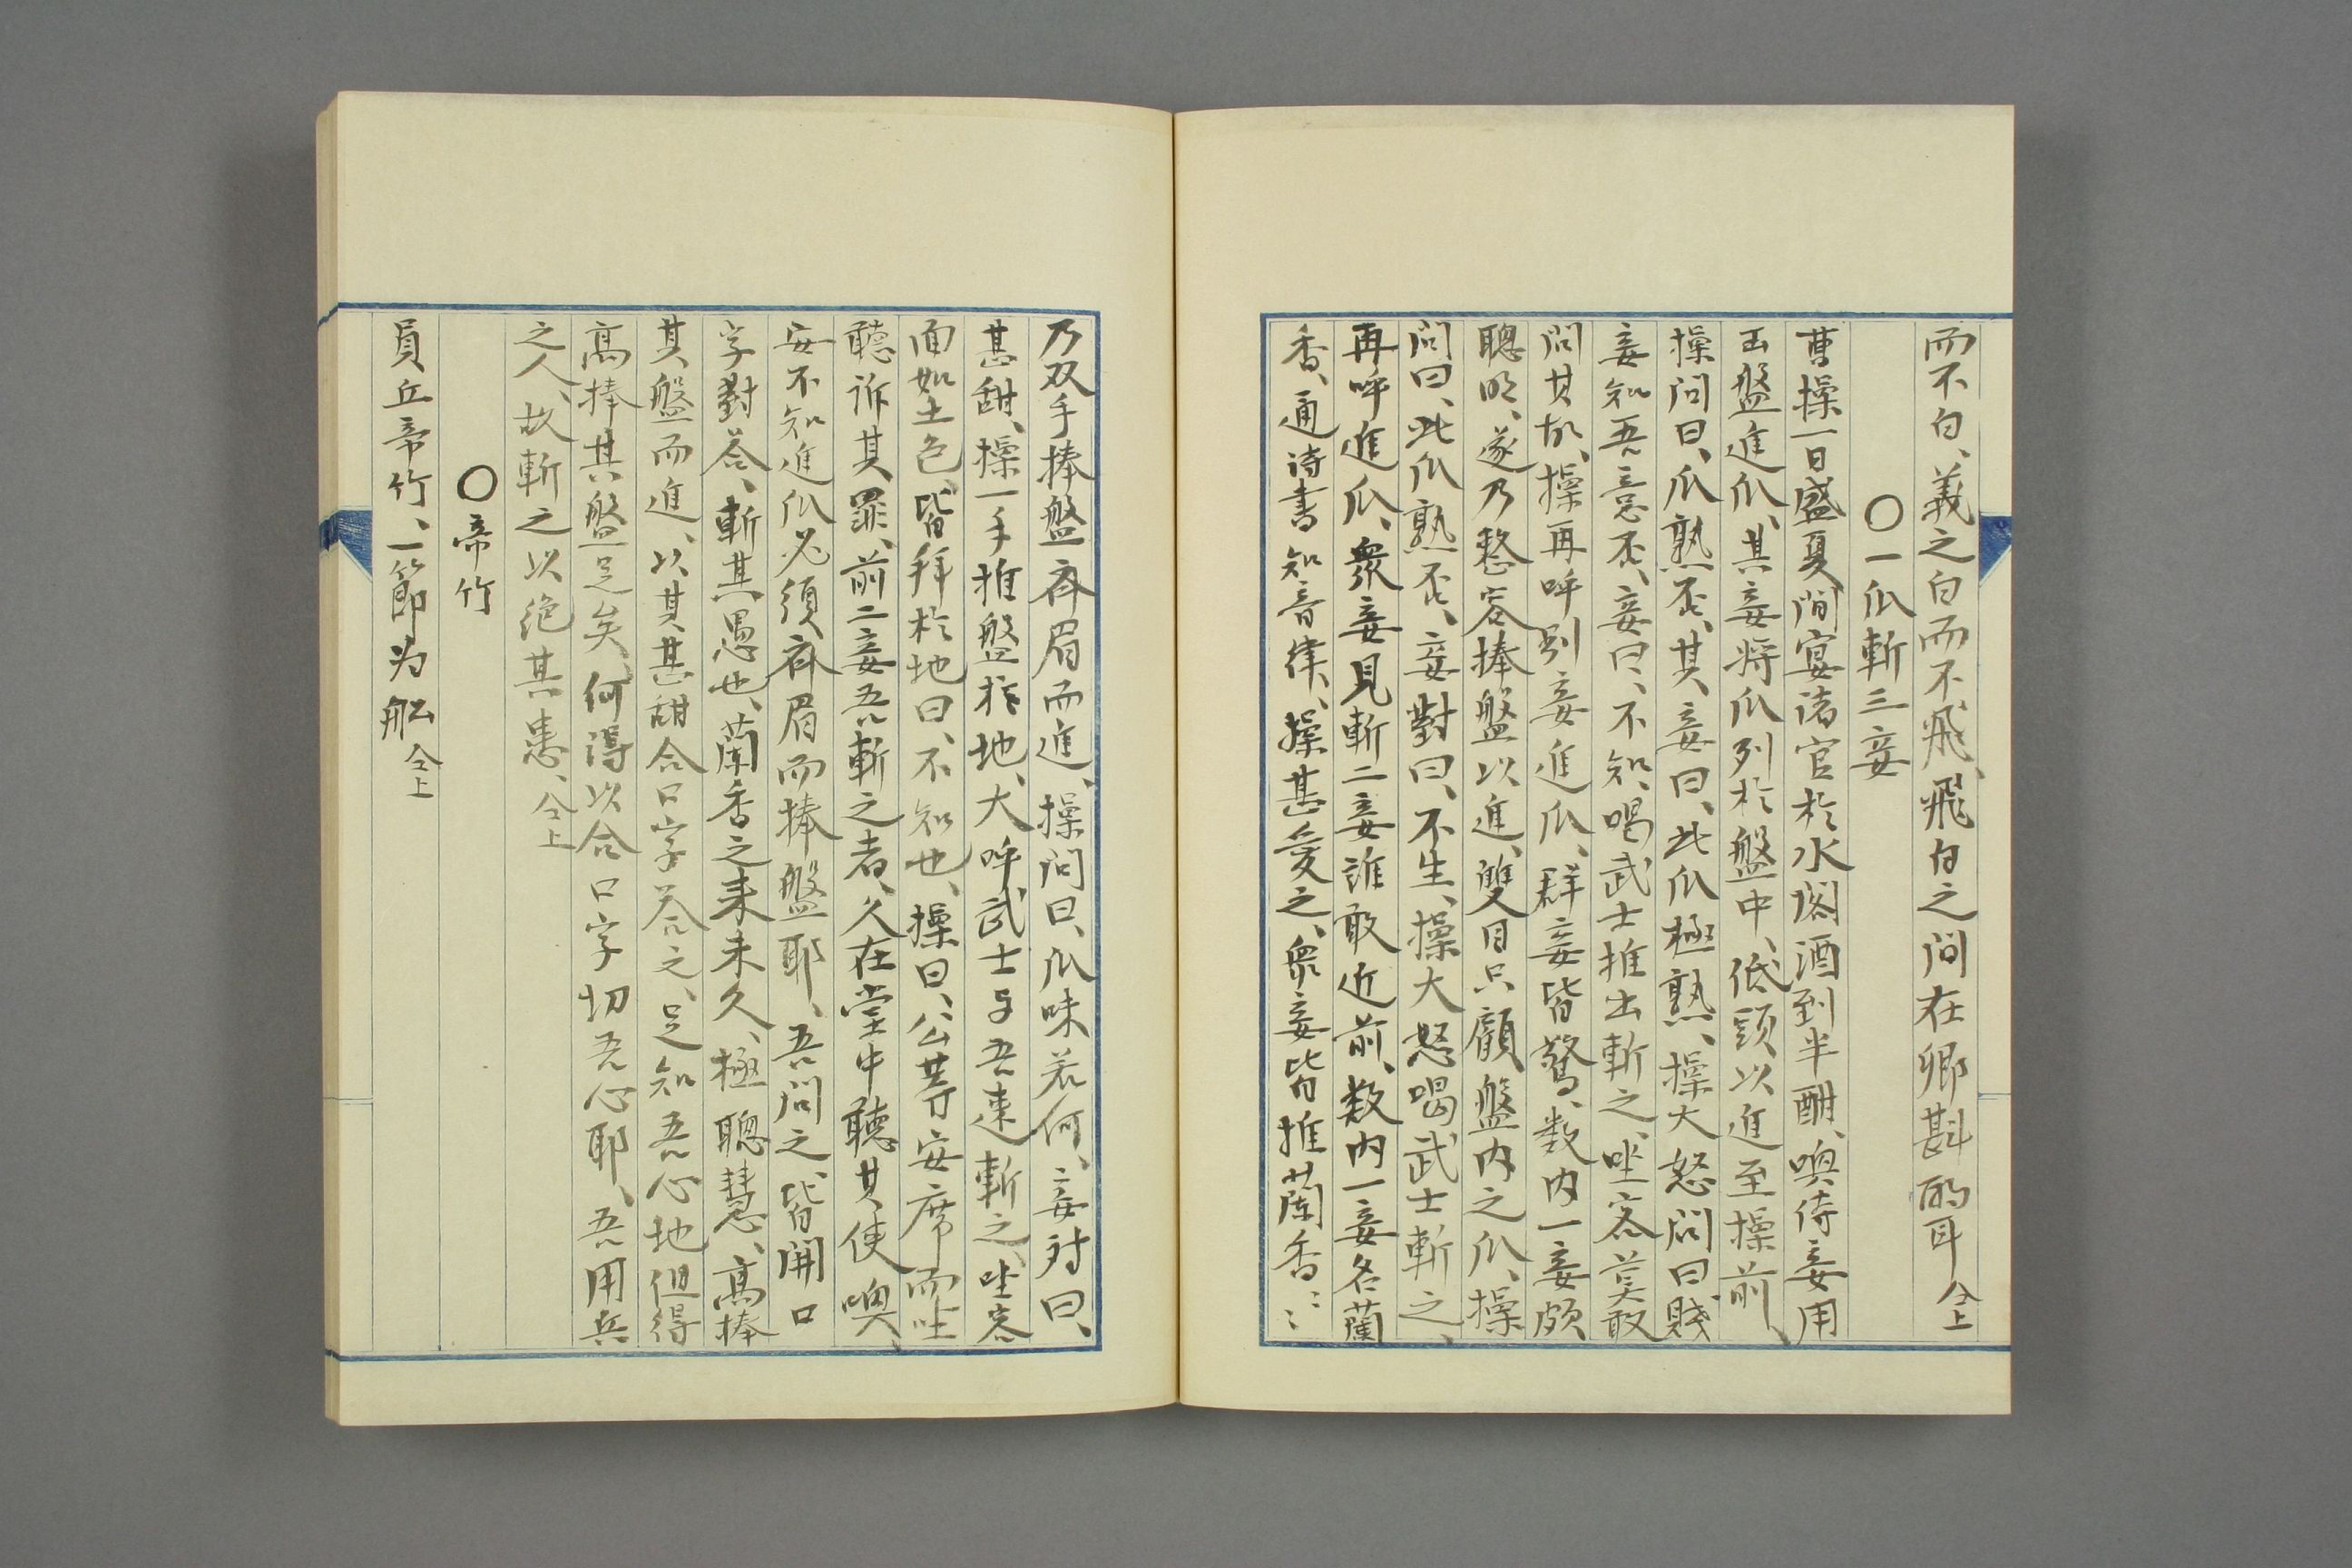 而不白、義之白而不飛、飛白之间在卿斟酌耳 仝上
〇一瓜斬三妾
曹操一日盛夏間宴诸官於水阁酒到半酣、喚侍妾用
玉盤進瓜、其妾将瓜列於盤中、低頭以進至操前、
操问曰、瓜熟否、其妾曰、此瓜極熟、操大怒问曰賤
妾知吾意否、妾曰、不知、喝武士推出斬之、坐客莫敢
问其故、操再呼别妾進瓜、群妾皆驚、数内一妾頗
聰明、遂乃整容捧盤以進、雙目只顧盤内之瓜、操
问曰、此瓜熟否、妾對曰、不生、操大怒喝武士斬之、
再呼進瓜、衆妾見斬二妾誰敢近前、数内一妾名蘭
香、通诗書知音律、操甚愛之、衆妾皆推蘭香〻〻
乃双手捧盤齐眉而進、操问曰、瓜味若何、妾对曰、
甚甜、操一手推盤於地、大呼武士与吾速斬之、坐客
面如土色、皆拜於地曰、不知也、操曰、公等安席而坐
聽诉其罪、前二妾吾斬之者、久在堂中聽其使喚、
安不知進瓜必須齐眉而捧盤耶、吾问之、皆開口
字對答、斬其愚也、蘭香之来未久、極聰慧、高捧
其盤而進、以其甚甜合口字答之、足知吾心地但得
高捧其盤足矣、何得以合口字切吾心耶、吾用兵
之人、故斬之以绝其患、仝上
〇帝竹
員丘帝竹、一節为船 仝上